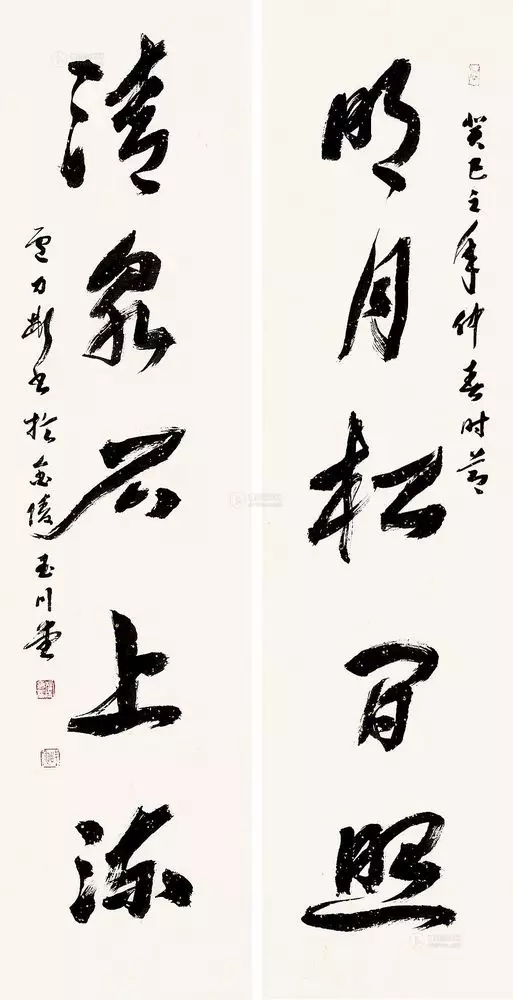 癸巳之年仲春时节
明月松间照
清泉石上流
卢力斯书于金陵玉川堂